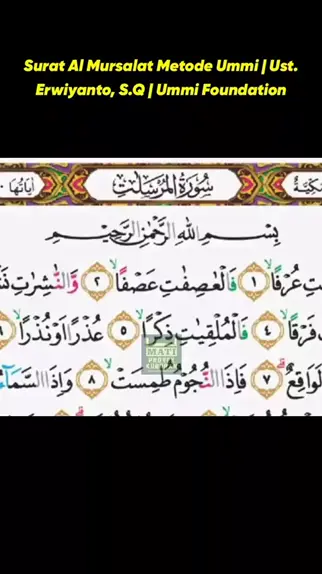 Surat Al Mursalat Metode Ummi | Ust.
Erwiyanto, S.Q | Ummi Foundation
اٰيَاتُهَا سُوْرَةُ الْمُرْسَلٰتِ مَكِّيَّةٌ
بِسْمِ اللّٰهِ الرَّحْمٰنِ الرَّحِيْمِ
عُرْفًا ۱ فَالْعٰصِفٰتِ عَصْفًا ۲ وَّالنّٰشِرٰتِ
فَرْقًا ٤ فَالْمُلْقِيٰتِ ذِكْرًا ٥ عُذْرًا اَوْ نُذْرًا
لَوَاقِعٌ ۷ فَاِذَا النُّجُوْمُ طُمِسَتْ ۸ وَاِذَا السَّمَاۤءُ